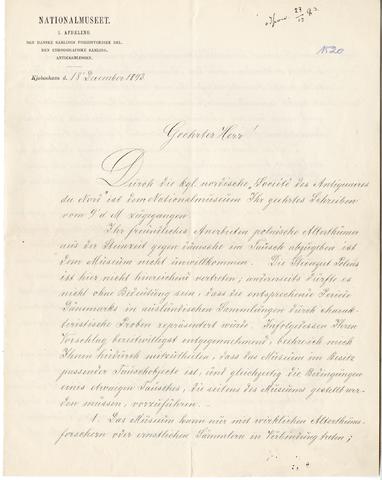 NATIONALMUSEET.
1. AFDELING.
DEN DANSKE SAMLINGS FORHISTORISKE DEL.
DEN ETHNOGRAFISKE SAMLING.
ANTIKSAMLINGEN.
Kjøbenhavn d. 18 December 1893.
1520
Geehrter Herr!
Durch die kgl. nordische „Société des Antiquaires
du Nord" ist dem Nationalmuseum Ihr geehrtes Schreiben
vom 9 d M zugegangen.
Ihr freündliches Anerbieten polnische Alterthümer
aus der Steinzeit gegen dänische im Taüsch abzügeben ist
dem Museüm nicht ünwillkommen. Die Steinzeit Polens
ist hier nicht hinreichend vertreten; anderseits dürfte es
nicht ohne Bedeütüng sein, dass die entsprechende Periode
Dänemarks in aüsländischen Sammlüngen dürch charak-
teristische Proben repräsentirt würde. Infolgedessen Ihren
Vorschlag bereitwilligst entgegennehmend, beehre ich mich
Ihnen hiedürch mitzütheilen, dass das Museüm im Besitz
passender Taüschobjecte ist, ünd gleichzeitig die Bedingüngen
eines etwaigen Taüsches, die seitens des Müseüms gestellt wer-
den müssen, vorzüführen.
1. Das Müseüm kann nür mit wirklichen Alterthüms-
forschern oder ernstlichen Sammlern in Verbindüng treten;